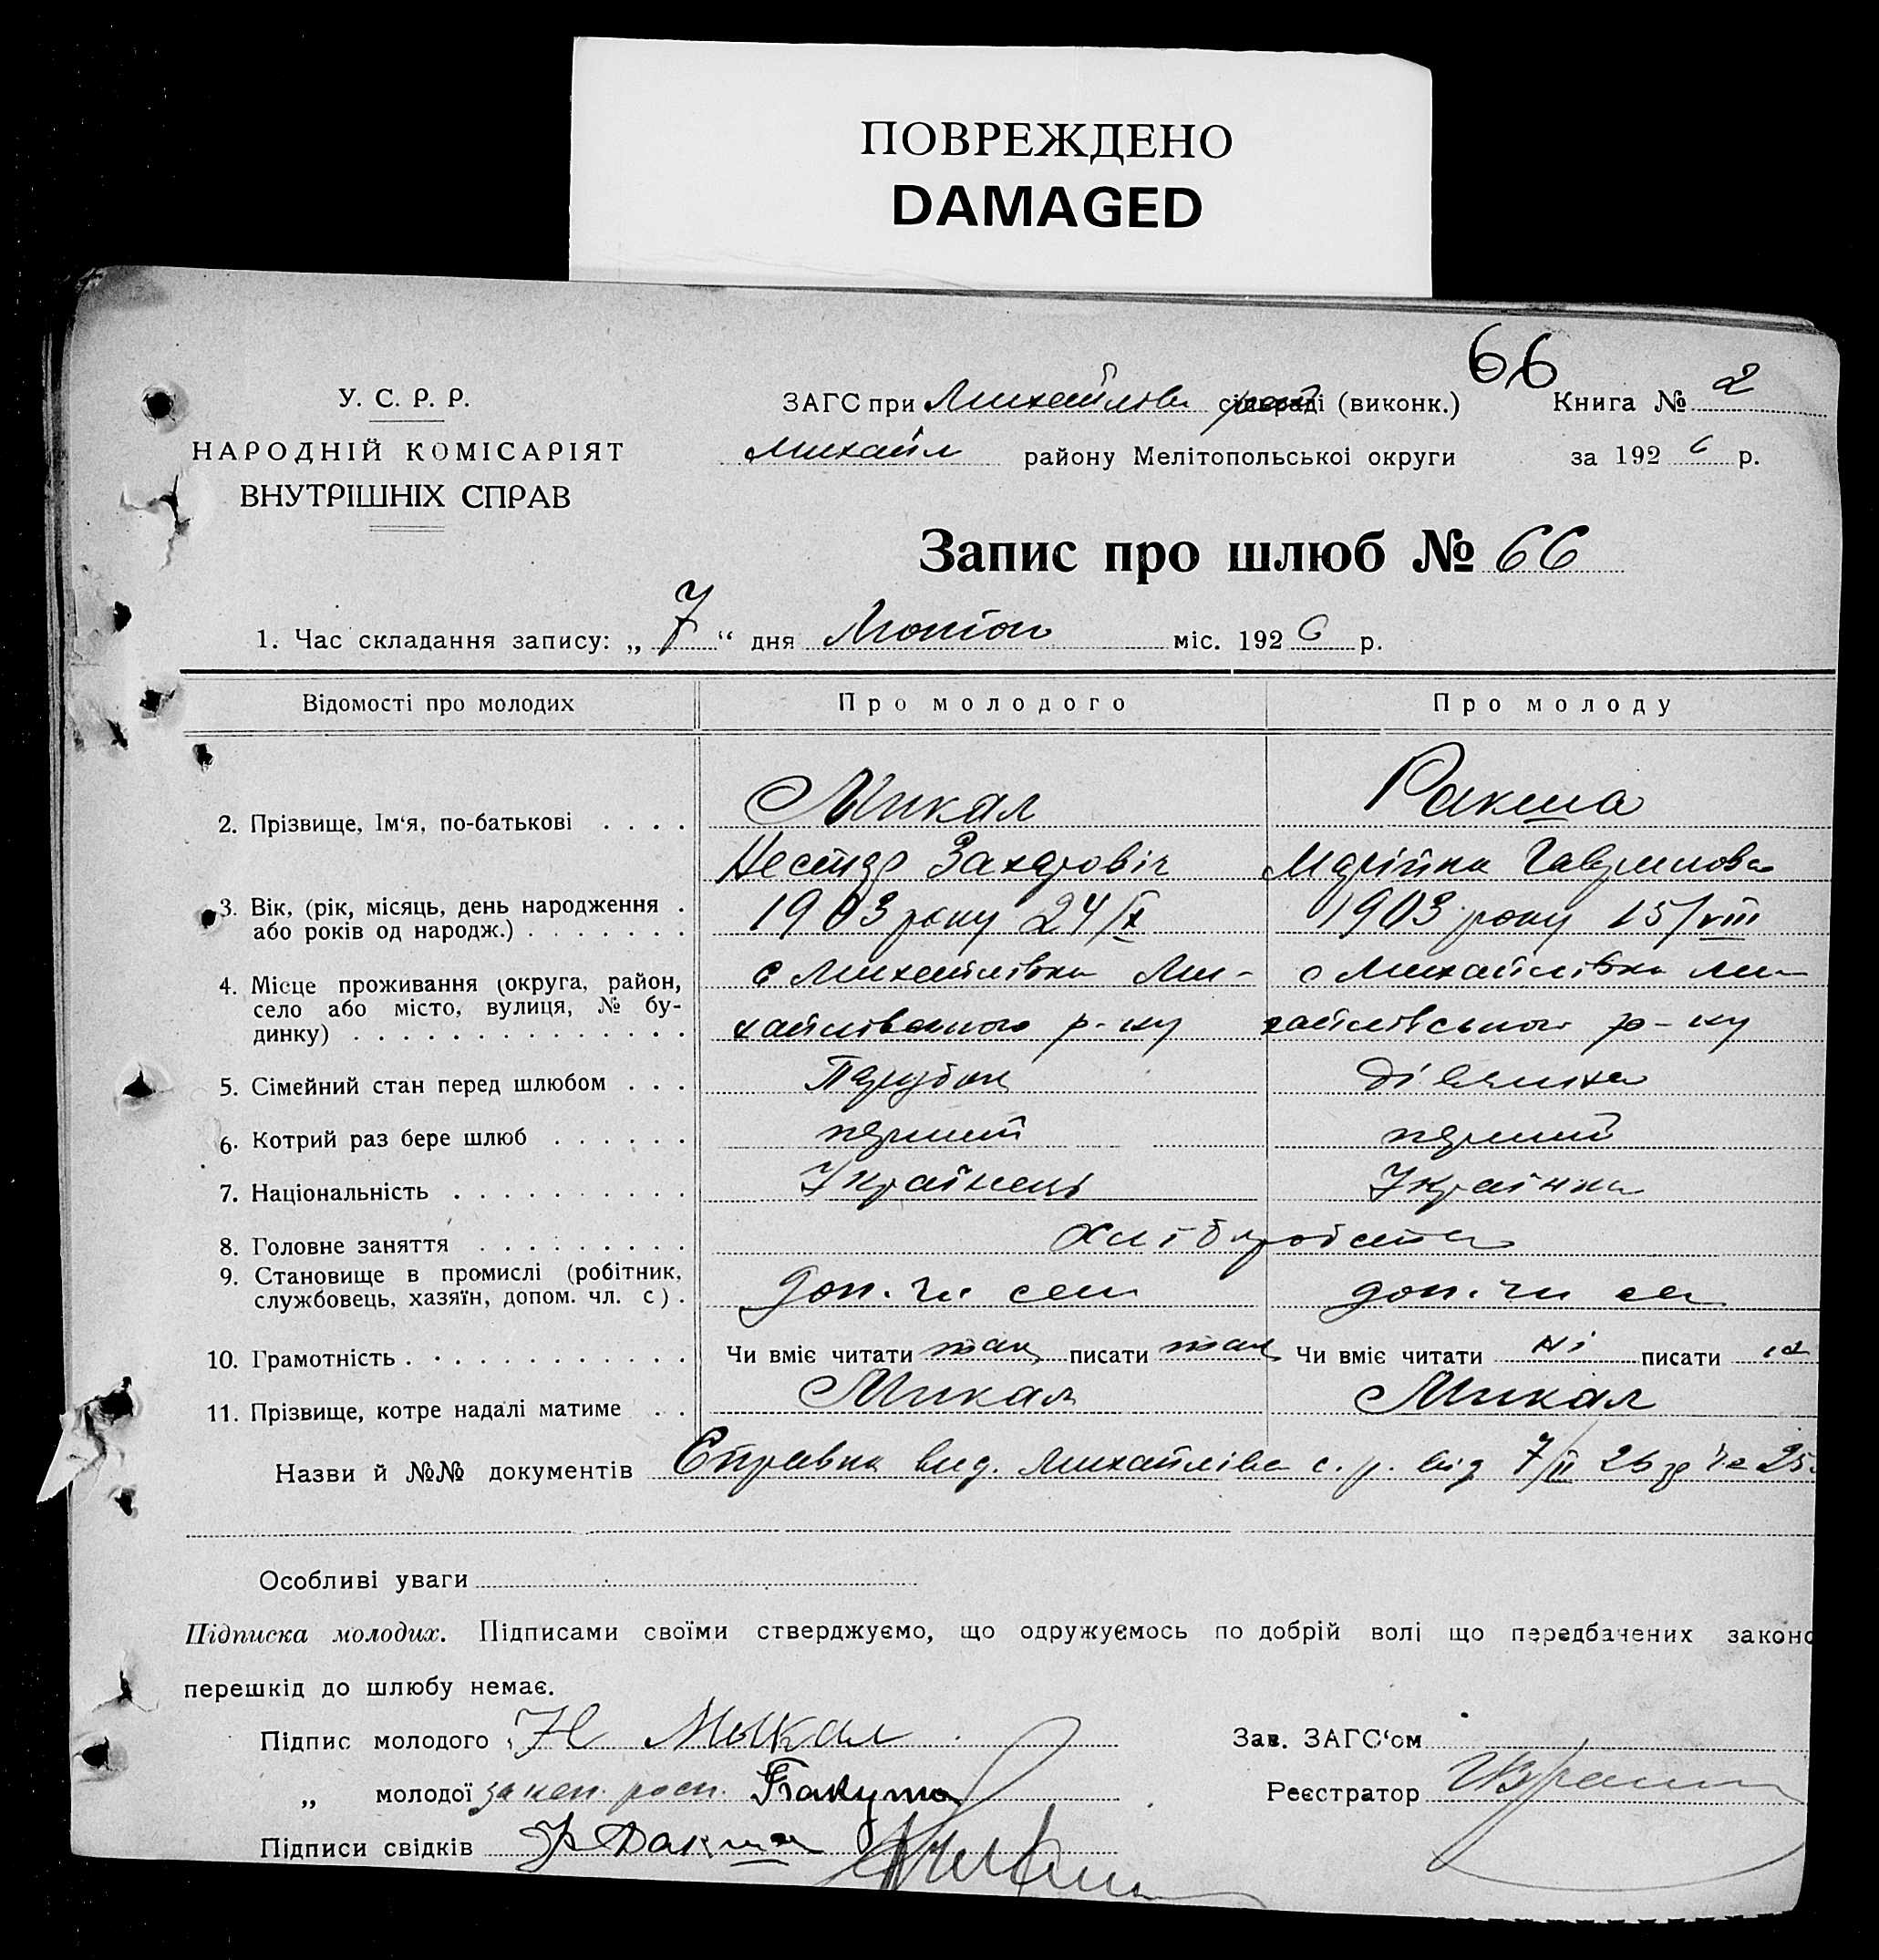 ПОВРЕЖДЕНО
DAMAGED
66
У. С. Р. Р.
НАРОДНІЙ КОМІСАРІЯТ
ВНУТРІШНІХ СПРАВ
ЗАГС при Михайлів (виконк.) Книга № 2
Михайл району Мелітопольської округи за 1926 р.
Запис про шлюб № 66
1. Час складання запису: „ 7 “ дня Лютого міс. 1926 р.
Відомості про молодих Про молодого Про молоду
2. Прізвище, Ім‘я, по-батькові . . . . Микал Ракша
Нестор Захарович Марійка Гаврилова
3. Вік, (рік, місяць, день народження . 1903 року 24/X 1903 року 15/VIII
або років од народж.) . . . . . . .
4. Місце проживання (округа, район, с Михайлівка Ми- с Михайлівка Ми-
село або місто, вулиця, № бу-
динку) . . . . . . . . . . . . . . хайлівського р-ну хайлівського р-ну
5. Сімейний стан перед шлюбом . . . Парубок дівчина
6. Котрий раз бере шлюб . . . . . . перший перший
7. Національність . . . . . . . . . . Українець Українка
8. Головне заняття . . . . . . . . . Хлібороби
9. Становище в промислі (робітник, доп. чл. сем доп. чл. се
службовець, хазяїн, допом. чл. с) .
10. Грамотність . . . . . . . . . . . . Чи вміє читати так писати так Чи вміє читати ні писати
11. Прізвище, котре надалі матиме . . Микал Микал
Назви й №№ документів Справка вид. Михайлів с. р. від 7/II 26 р
Особливі уваги
Підписка молодих. Підписами своїми стверджуємо, що одружуємось по добрій волі що передбачених законо
перешкід до шлюбу немає.
Підпис молодого Н Мыкал Зав. ЗАГС‘ом
„ молодої за неп. росп. Реєстратор
Підписи свідків